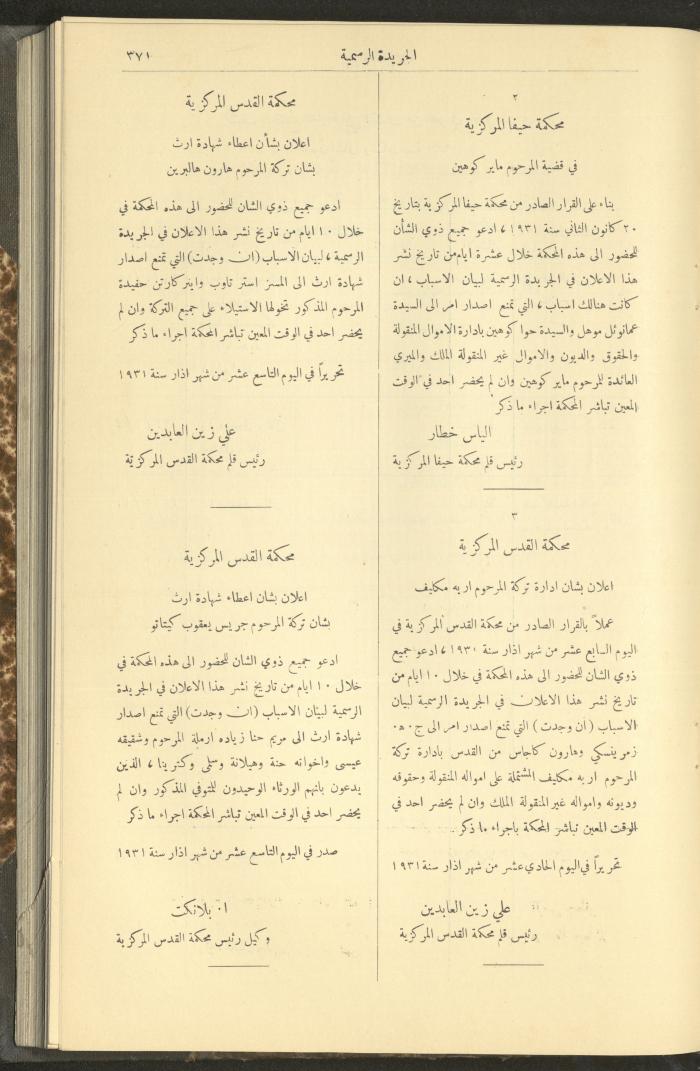 الجريدة الرسمية
٣٧١
٢
محكمة حيفا المركزية
في قضية المرحوم ماير كوهين
بناء على القرار الصادر من محكمة حيفا المركزية بتاريخ
٢٠ كانون الثاني سنة ١٩٣١، ادعو جميع ذوي الشأن
للحضور الى هذه المحكمة خلال عشرة ايام من تاريخ نشر
هذا الاعلان في الجريدة الرسمية لبيان الاسباب، ان
كانت هنالك اسباب، التي تمنع اصدار امر الى السيدة
عمانوئل موهل والسيدة حوا كوهين بادارة الاموال المنقولة
والحقوق والديون والاموال غير المنقولة الملك والميري
العائدة للمرحوم ماير كوهين وان لم يحضر احد في الوقت
المعين تباشر المحكمة اجراء ما ذكر
الياس خطار
رئيس قلم محكمة حيفا المركزية
٣
محكمة القدس المركزية
اعلان بشان ادارة تركة المرحوم اربه مكليف
عملاً بالقرار الصادر من محكمة القدس المركزية في
اليوم السابع عشر من شهر اذار سنة ١٩٣٠، ادعو جميع
ذوي الشان للحضور الى هذه المحكمة في خلال ١٠ ايام من
تاريخ نشر هذا الاعلان في الجريدة الرسمية لبيان
الاسباب (ان وجدت) التي تمنع اصدار امر الى ج. ه.
زمرينسكي وهارون كاحاس من القدس بادارة تركة
المرحوم اربه مكليف المشتملة على امواله المنقولة وحقوقه
وديونه وامواله غير المنقولة الملك وان لم يحضر احد في
الوقت المعين تباشر المحكمة باجراء ما ذكر
تحريراً في اليوم الحادي عشر من شهر اذار سنة ١٩٣١
علي زين العابدين
رئيس قلم محكمة القدس المركزية
محكمة القدس المركزية
اعلان بشأن اعطاء شهادة ارث
بشان تركة المرحوم هارون هالبرين
ادعو جميع ذوي الشان للحضور الى هذه المحكمة في
خلال ١٠ ايام من تاريخ نشر هذا الاعلان في الجريدة
الرسمية، لبيان الاسباب (ان وجدت) التي تمنع اصدار
شهادة ارث الى المسز استر تاوب واينركارتن حفيدة
المرحوم المذكور تخولها الاستيلاء على جميع التركة وان لم
يحضر احد في الوقت المعين تباشر المحكمة اجراء ما ذكر
تحريراً في اليوم التاسع عشر من شهر اذار سنة ١٩٣١
علي زين العابدين
رئيس قلم محكمة القدس المركزية
محكمة القدس المركزية
اعلان بشان اعطاء شهادة ارث
بشان تركة المرحوم جريس يعقوب كيتاتو
ادعو جميع ذوي الشان للحضور الى هذه المحكمة في
خلال ١٠ ايام من تاريخ نشر هذا الاعلان في الجريدة
الرسمية لبيان الاسباب (ان وجدت) التي تمنع اصدار
شهادة ارث الى مريم حنا زياده ارملة المرحوم وشقيقه
عيسى واخواته حنة وهيلانة وسلمى وكترينا، الذين
يدعون بانهم الورثاء الوحيدون للمتوفي المذكور وان لم
يحضر احد في الوقت المعين تباشر المحكمة اجراء ما ذكر
صدر في اليوم التاسع عشر من شهر اذار سنة ١٩٣١
ا. بلانكت
وكيل رئيس محكمة القدس المركزية